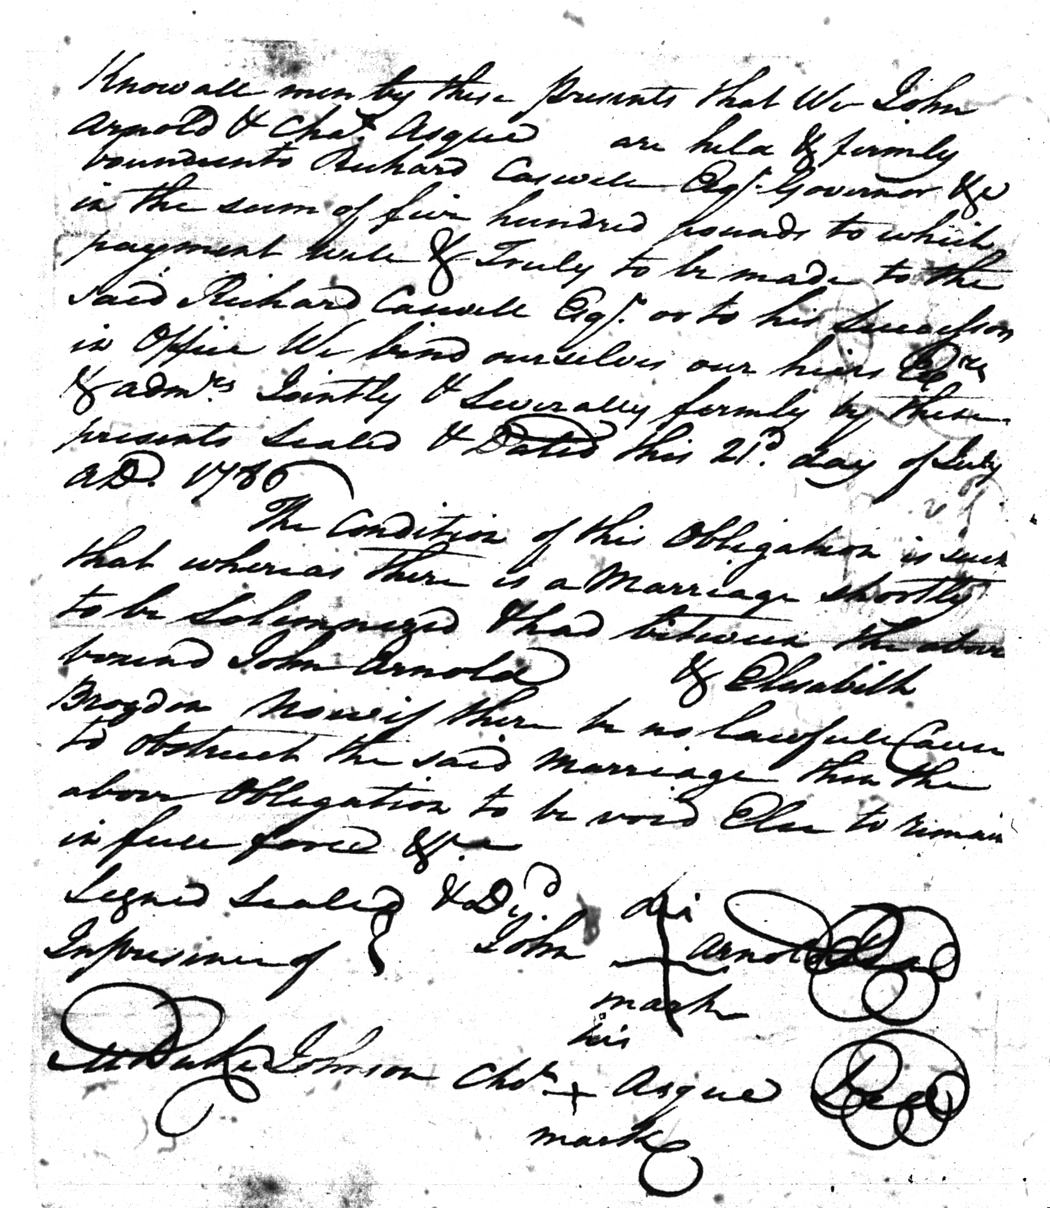 Know all men by these presents that We John
Arnold & Chas. Asque are held & firmly
bound unto Richard Caswell Esqr. Governor &c
in the sum of five hundred pounds to which
payment well & Truly to be made to the
said Richard Caswell Esqr. or to his successors
in office We bind ourselves our heirs Exrs
& admrs Jointly & Severally firmly by these
presents Sealed & Dated this 21d. day of July
AD. 1786
The Condition of this Obligation is such
that whereas there is a Marriage shortly
to be Solemnezed & had between the above
bound John Arnold & Elisabeth
Brogdon Now if there be no lawfull Cause
to obstruct the said Marriage then the
above Obligation to be void Else to remain
in full force &c
Signed Sealed & Dd.
In presence of John his Arnold Seal
mark
his
Duke Johnson Chas + Asque Seal
mark